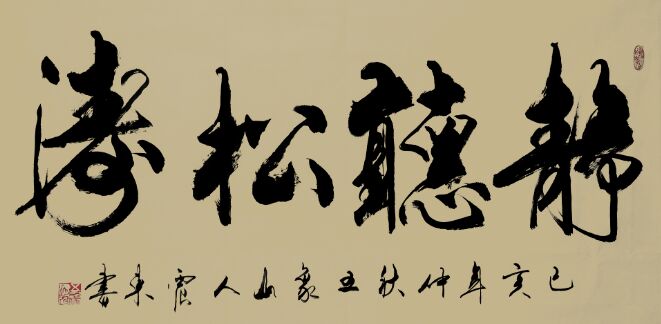 靜聽松濤
己亥年仲秋五象山人震東書